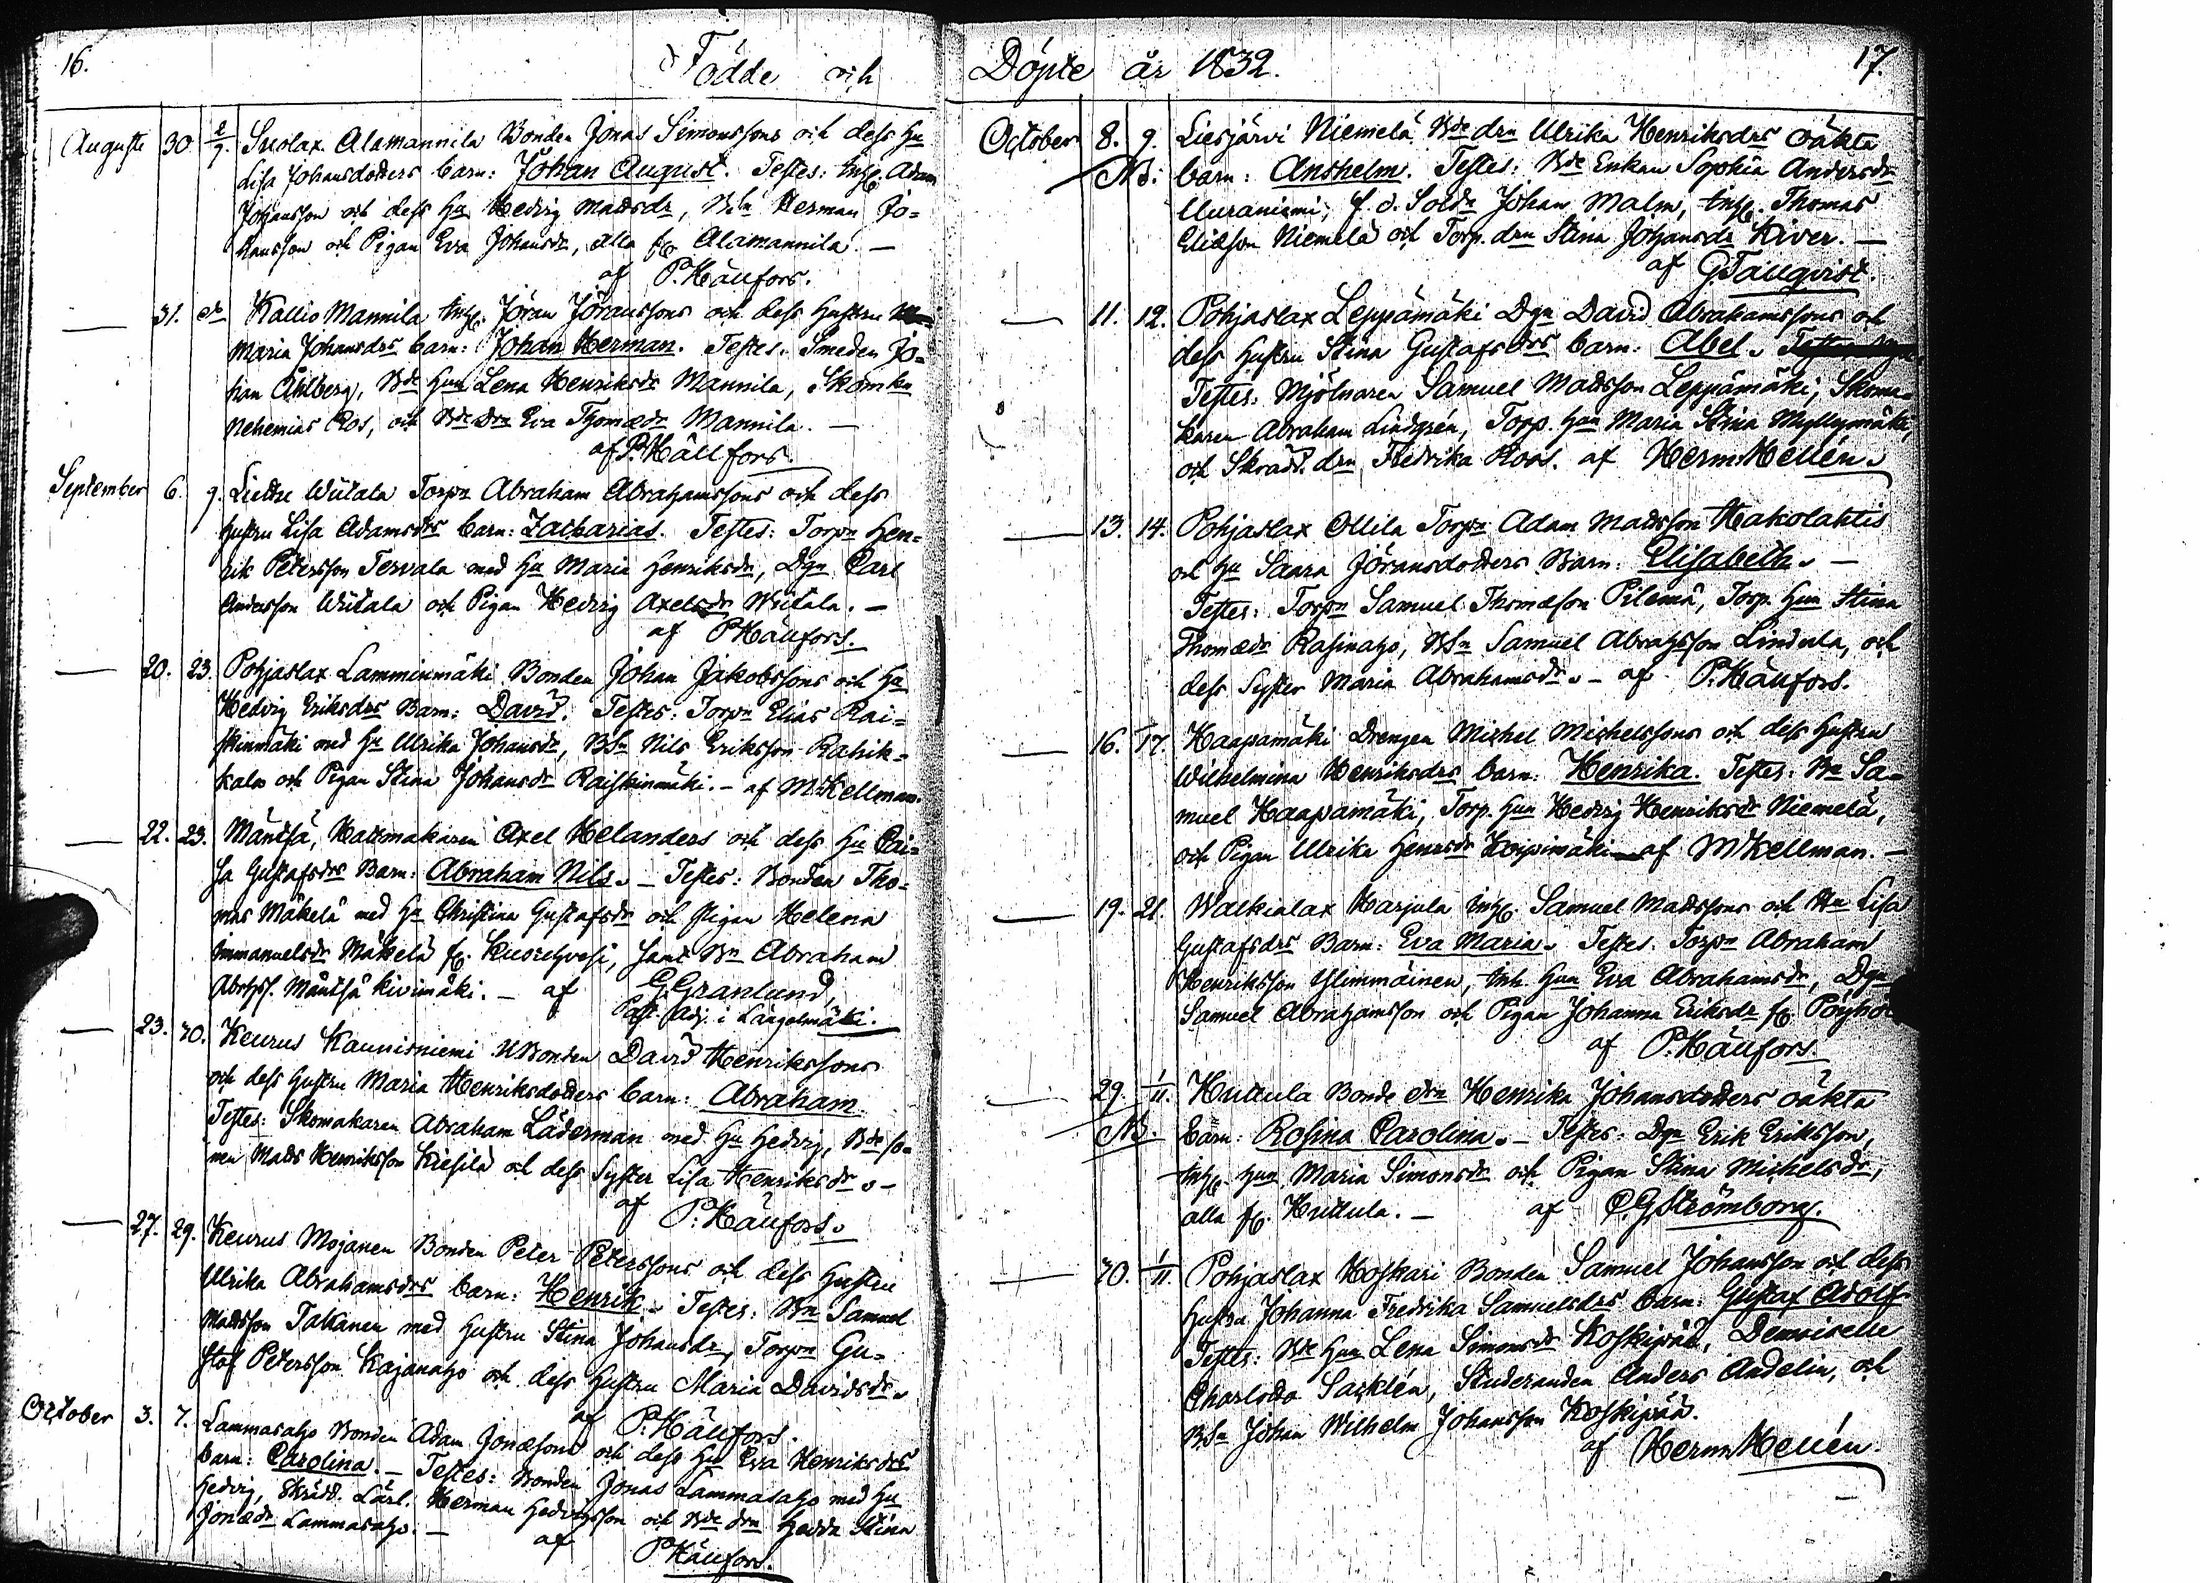 16.
Födde och
Augusti 30 2/9. Suolax Alamannila Bonden Jonas Simonssons och dess Hu
Lisa Johansdotters barn: Johan August. Testes: Inh. Adam
Johansson och dess Hu Hedvig Madsdr, Herman Jo=
hansson och Pigan Eva Johansdr, alla fr. Alamannila. —
af P. Hällfors.
— 31. Kallio Mannila Inh. Jöran Jöranssons och dess Hustru
Maria Johansdrs barn: Johan Herman. Testes: Smeden Jo=
han Åhlberg, Bde Hun Lena Henriksdr Mannila, Skomkn
Nehemias Ros, och Bde Drn Eva Thomædr Mannila. —
af P. Hällfors.
September 6. 9. Liethe Wiitala Torpn Abraham Abrahamssons och dess
hustru Lisa Adamsdrs barn: Zacharias. Testes: Torpn Hen=
rik Petersson Tervala med Hu Maria Henriksdr, Dgn Carl
Andersson Wiitala och Pigan Hedvig Axelsdr Wiitala. —
af P. Hällfors.
— 20. 23. Pohjaslax Lamminmäki Bonden Johan Jakobssons och Hu
Hedvig Eriksdrs Barn: David. Testes: Torpn Elias Rai=
skinmäki med Hu Ulrika Johansdr, BSn Nils Eriksson Rahik=
kala och Pigan Stina Johansdr Raiskinmäki. – af M. Kellman.
— 22. 23. Mäntsä, Hattmakaren Axel Helanders och dess Hu Cai=
sa Gustafsdrs Barn: Abraham Nils. – Testes: Bonden Tho=
mas Mäkelä med Hu Christina Gustafsdr och Pigan Helena
Immanuelsdr Mäkelä fr. Kuorevesi, samt Bn Abraham
Abrhss. Mäntsä Kivimäki. – af G. Granlund,
Past. Adj. i Längelmäki.
— 23. 30. Keurus Kaunisniemi Bonden David Henrikssons
och dess hustru Maria Henriksdotters barn: Abraham.
Testes: Skomakaren Abraham Läderman med Hu Hedvig, Bde so=
nen Mads Henriksson Kiesilä och dess Syster Lisa Henriksdr. –
af P. Hällfors.
— 27. 29. Keurus Mojanen Bonden Peter Peterssons och dess Hustru
Ulrika Abrahamsdrs barn: Henrik. Testes: Bn Samuel
Madsson Takanen med hustru Stina Johansdr, Torpn Gu=
staf Petersson Kajanaho och dess hustru Maria Davidsdr.
af P. Hällfors.
October 3. 7. Lammasaho Bonden Adam Jonæsons och dess Hu Eva Henriksdrs
barn: Carolina. – Testes: Bonden Jonas Lammasaho med Hu
Hedvig, Skrädd. Lärl. Herman Hedvigsson och Bde drn Hedda Stina
Jonædr Lammasaho. – af P. Hällfors.
Döpte år 1832.
17.
October 8. 9. Liesjärvi Niemelä Bde drn Ulrika Henriksdrs oäkta
Nb: barn: Anshelm. Testes: Bde Enkan Sophia Andersdr
Uuraniemi, f. d. Soldn Johan Malm, Inh. Thomas
Eliæson Niemelä och Torp. drn Stina Johansdr Kiver. —
af G. Tallqvist.
— 11. 12. Pohjaslax Leppämäki Dgn David Abrahamssons och
dess hustru Stina Gustafsdrs barn: Abel.
Testes: Mjölnaren Samuel Madsson Leppämäki, Skoma=
karen Abraham Lindgrén, Torp. Hun Maria Stina Myllymäki,
och Skrädd. drn Fredrika Roos. af Herm. Hellén.
— 13. 14. Pohjaslax Ollila Torpn Adam Madsson Hakolahtis
och Hu Saara Jöransdotters Barn: Elisabeth. —
Testes: Torpn Samuel Thomæson Pilemä, Torp. Hun Stina
Thomædr Rasinaho, BSn Samuel Abrahsson Lindula, och
dess Syster Maria Abrahamsdr. – af P. Hällfors.
— 16. 17. Haapamäki Drengen Michel Michelssons och dess hustru
Wilhelmina Henriksdrs barn: Henrika. Testes: Bn Sa=
muel Haapamäki, Torp. Hun Hedvig Henriksdr Niemelä,
och Pigan Ulrika Henrsdr Koipimäki – af M Kellman. –
— 19. 21. Walkialax Harjula Inh. Samuel Madssons och Hu Lisa
Gustafsdrs Barn: Eva Maria. Testes: Torpn Abraham
Henriksson Ylimmäinen, Inh. Hun Eva Abrahamsdr, Dgn
Samuel Abrahamsson och Pigan Johanna Eriksdr fr.
af P. Hällfors.
— 29. 1/11. Huttula Bonde drn Henrika Johansdotters oäkta
Nb. barn: Rosina Carolina. – Testes: Dgn Erik Eriksson,
Inh. Hun Maria Simonsdr och Pigan Stina Michelsdr,
alla fr. Huttula. – af C. G. Strömborg.
— 30. 1/11. Pohjaslax Koskari Bonden Samuel Johansson och dess
hustru Johanna Fredrika Samuelsdrs barn: Gustaf Adolf
Testes: Bde Hun Lena Simonsdr Koskipää, Demoiselle
Charlotta Sacklén, Studeranden Anders Andelin, och
BSn Johan Wilhelm Johansson Koskipää.
af Herm. Hellén.